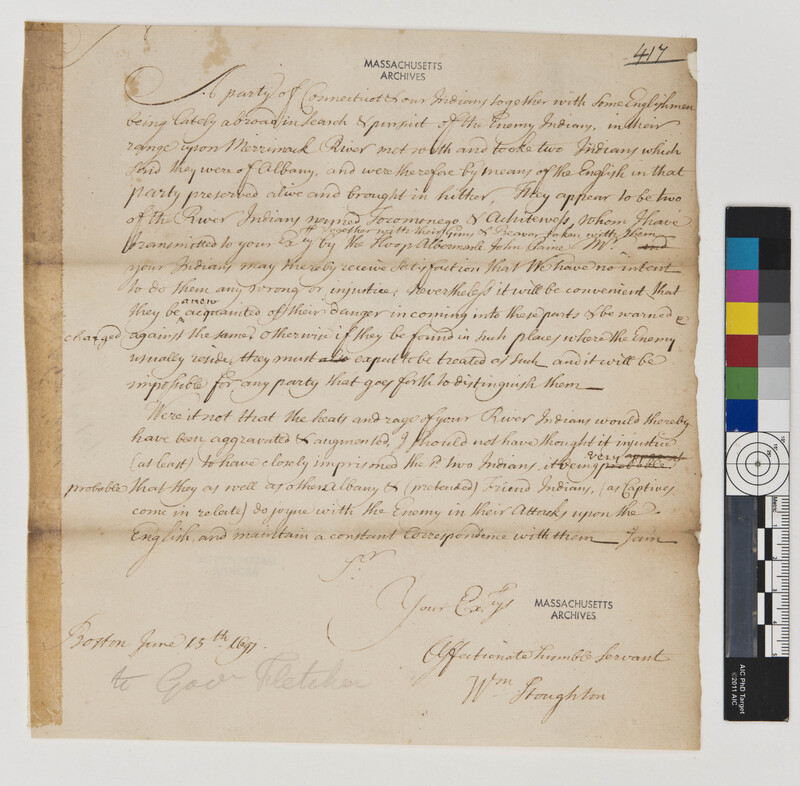 417
MASSACHUSETTS
ARCHIVES
A party of Connecticot & our Indians together with some Englishmen
being lately abroad in search & pursuit of the Enemy Indians, in their
range upon Merrimack River met with and tooke two Indians which
said they were of Albany, and were therefore by means of the English in that
party preserved alive and brought in hither, They appear to be two
of the River Indians named Tocomenego, & whom I have
together with their Guns & Beavor taken with them
transmitted to your Excy by the Sloop Albemarle John Paine Mr. and
your Indians may thereby receive satisfaction that We have no intent
to do them any wrong or injustice, Nevertheless it will be convenient that
they be anew acquainted of their danger in coming into these parts & be warned &
charged against the same; Otherwise if they be found in such places where the Enemy
usually reside, they must also expect to be treated as such and it will be
impossible for any party that goes forth to distinguish them
Were it not that the heats and rage of your River Indians would thereby
have been aggravated & augmented, I should not have thought it injustice
(at least) to have closely imprisoned the sd. two Indians, it being very apparent probable
probable that they as well as other Albany & (pretended) Friend Indians, (as Captives
come in relate) do joyne with the Enemy in their Attacks upon the
English, and maintain a constant Correspondence with them I am
Sr.
Your Excys
MASSACHUSETTS
ARCHIVES
Boston June 15th 1697.
Affectionate humble Servant
Wm Stoughton
to Govr Fletcher
AIC PhD Target
©2011 AIC